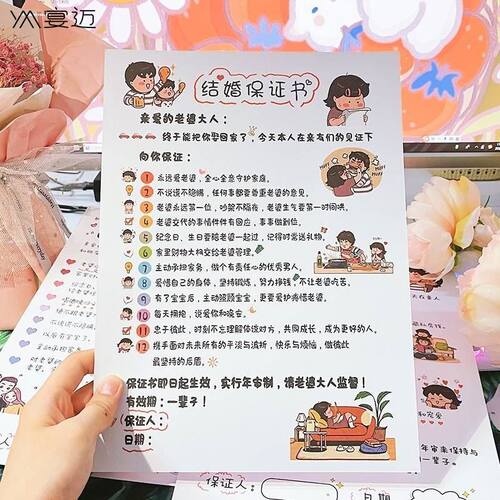 宴迈
结婚保证书
亲爱的老婆大人：
终于能把你娶回家了，今天本人在亲友们的见证下
向你保证：
1 永远爱老婆，全心全意守护家庭。
2 不说谎不隐瞒，任何事都要尊重老婆的意见。
3 老婆永远第一位，吵架不隔夜，老婆生气要第一时间哄。
4 老婆交代的事情件件有回应，事事做到位。
5 纪念日、生日要陪老婆一起过，记得时常送礼物。
6 家里财物大权交给老婆管理。
7 主动承担家务，做个有责任心的优秀男人。
8 爱惜自己的身体，坚持锻炼，努力挣钱，不让老婆吃苦。
9 有了宝宝后，主动照顾宝宝，更要爱护疼惜老婆。
10 每天拥抱，说爱你和晚安。
11 忠于彼此，时刻不忘理解体谅对方，共同成长，成为更好的人。
12 携手面对未来所有的平淡与波折，快乐与烦恼，做彼此
最坚持的后盾。
保证书即日起生效，实行年审制，请老婆大人监督！
有效期：一辈子！
保证人：
日期：
年审来保持与
一辈子。
保证人：